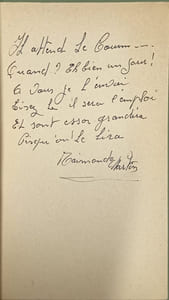 Il attend Le Coum---
Quand? Eh bien un jour!
A vous je l'envoie
Lisez le il sera l'emploi
Et sont essor grandira
Puisqu'on le Lira
Raimonde Martin